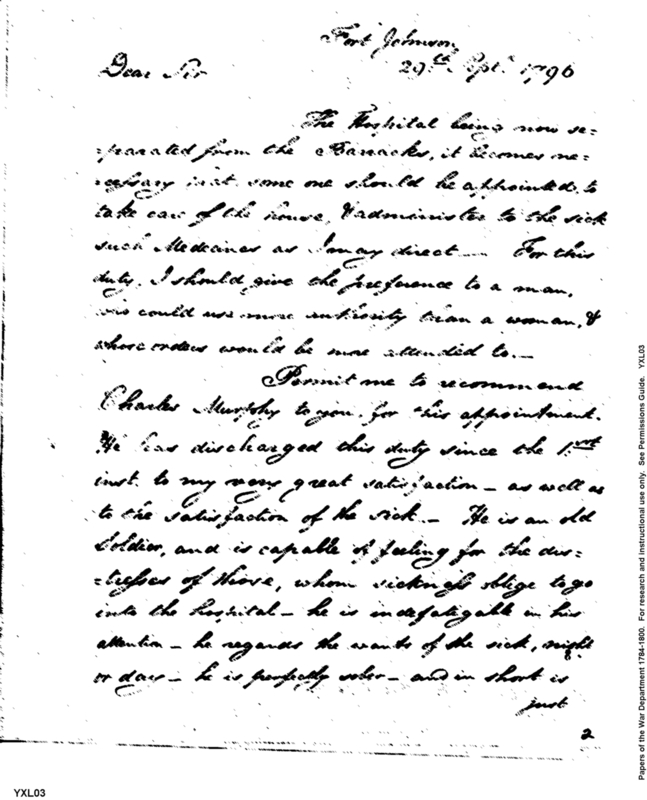 Fort Johnson
29th Sept. 1796
Dear Sir
The Hospital being now se=
=parated from the Barracks, it becomes ne=
=cessary that some one should be appointed, to
take care of the house, & administer to the sick
such Medicines as I may direct — For this
duty, I should give the preference to a man,
who could use more authority than a woman, &
whose orders would be more attended to. —
Permit me to recommend
Charles Murphy to you, for this appointment.
He has discharged this duty since the 1st
inst. to my very great satisfaction — as well as
to the satisfaction of the sick — He is an old
Soldier, and is capable of feeling for the dis=
=tresses of those, whom sickness oblige to go
into the hospital — he is indefatigable in his
attention — he regards the wants of the sick, night
or day — he is perfectly sober — and in short is
just
2
YXL03
Papers of the War Department 1784-1800. For research and instructional use only. See Permissions Guide. YXL03